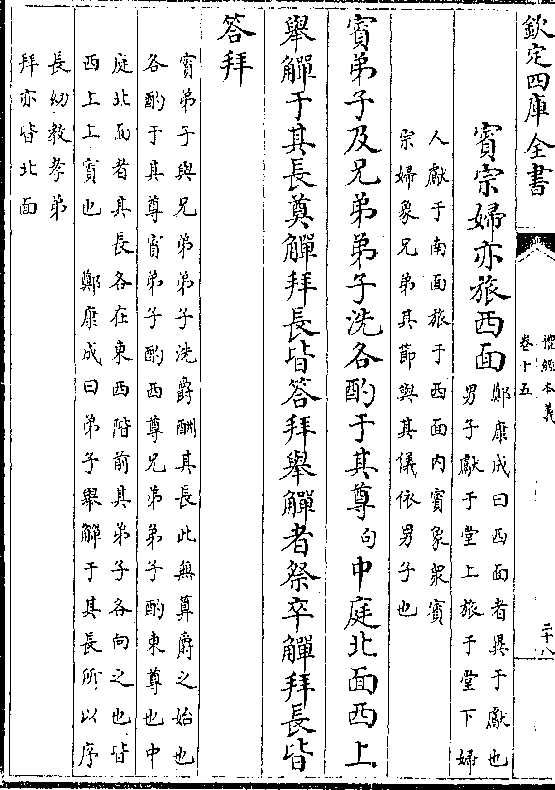 欽定四庫全書
禮經本義
卷十五
二十八
賓宗婦亦旅西面
鄭康成曰西面者異于獻也
男子獻于堂上旅于堂下婦
人獻于南面旅于西面内賓象衆賓
宗婦象兄弟其節與其儀依男子也
賓弟子及兄弟弟子洗各酌于其尊句中庭北面西上
舉觶于其長奠觶拜長皆答拜舉觶者祭卒觶拜長皆
答拜
賓弟子與兄弟弟子洗爵酬其長此無算爵之始也
各酌于其尊賓弟子酌西尊兄弟弟子酌東尊也中
庭北面者其長各在東西階前其弟子各向之也皆
西上上賓也　鄭康成曰弟子舉觶于其長所以序
長幼教孝弟
拜亦皆北面